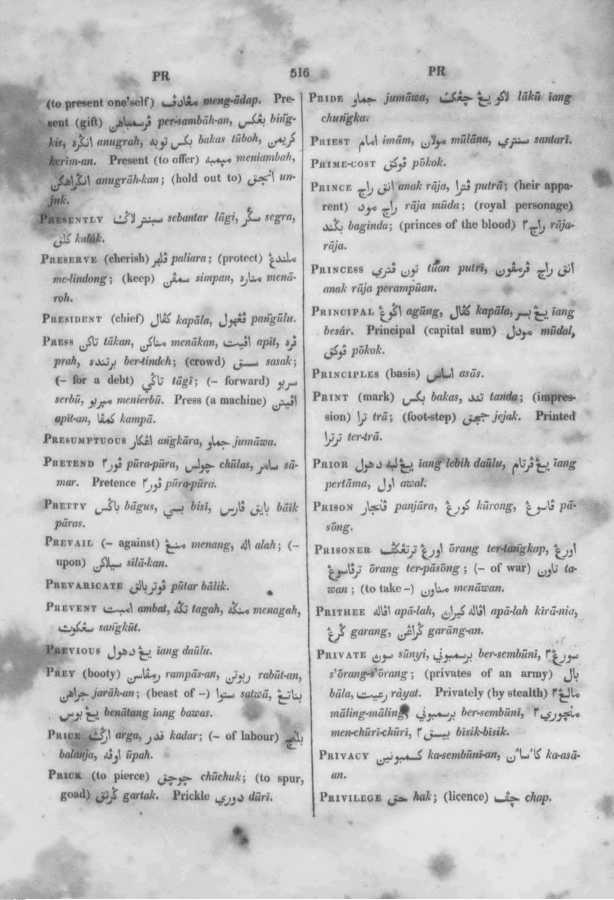 PR
516
PR
(to present one'self) مڠادڤ meng-ādap. Pre-
sent (gift) ڤرسمباهن per-sambāh-an, بڠكس bing-
kis, انڬره anugrah, بكس توبه bakas tūboh, كريمن
kerim-an. Present (to offer) ميمبه meniambah,
انڬراهكن anugrāh-kan; (hold out to) انجق un-
juk.
PRESENTLY سبنتر لاڬي sebantar lāgi, سڬر segra,
كلق kalák.
PRESERVE (cherish) ڤلير paliara; (protect) ملندڠ
me-lindong; (keep) سمڤن simpan, مناره menā-
roh.
PRESIDENT (chief) كڤال kapāla, ڤڠهول pangūlu.
PRESS تاكن tākan, مناكن menākan, اڤيت apit, ڤره
prah, برتنده ber-tindeh; (crowd) سسق sasak;
(– for a debt) تاڬي tāgi; (– forward) سربو
serbū, ميربو menierbū. Press (a machine) اڤيتن
apit-an, كمڤا kampā.
PRESUMPTUOUS اڠكار angkāra, جماو jumāwa.
PRETEND ڤور٢ pūra-pūra, چولس chūlas, سامر sā-
mar. Pretence ڤور٢ pūra-pūra.
PRETTY باڬس bāgus, بسي bisi, بايق ڤارس bāik
pāras.
PREVAIL (– against) منڠ menang, اله alah; (–
upon) سيلاكن silā-kan.
PREVARICATE ڤوتر بالق pūtar bālik.
PREVENT امبت ambat, تڬه tagah, منڬه menagah,
سڠكوت sangkūt.
PREVIOUS يڠ دهول iang daūlu.
PREY (booty) رمڤاسن rampās-an, ربوتن rabūt-an,
جراهن jarāh-an; (beast of –) ستوا satwā, بناتڠ
يڠ بوس benātang iang bawas.
PRICE ارڬ arga, قدر kadar; (– of labour) بلنج
balanja, اوڤه ūpah.
PRICK (to pierce) چوچق chūchuk; (to spur,
goad) ڬرتق gartak. Prickle دوري dūri.
PRIDE جماو jumāwa, لاكو يڠ چڠكق lākū iang
chungka.
PRIEST امام imām, مولان mūlāna, سنتري santari.
PRIME-COST ڤوكق pōkok.
PRINCE انق راج anak rāja, ڤترا putrā; (heir appa-
rent) راج مود rāja mūda; (royal personage)
بڬند baginda; (princes of the blood) راج٢ rāja-
rāja.
PRINCESS تون ڤتري tūan putri, انق راج ڤرمڤون
anak rāja perampūan.
PRINCIPAL اڬوڠ agūng, كڤال kapāla, يڠ بسر iang
besár. Principal (capital sum) مودل mūdal,
ڤوكق pōkok.
PRINCIPLES (basis) اساس asās.
PRINT (mark) بكس bakas, تند tanda; (impres-
sion) ترا trā; (foot-step) ججق jejak. Printed
ترترا ter-trā.
PRIOR يڠ لبه دهول iang lebih daūlu, يڠ ڤرتام iang
pertāma, اول awal.
PRISON ڤنجار panjāra, كورڠ kūrong, ڤاسوڠ pā-
sōng.
PRISONER اورڠ ترتڠكڤ ōrang ter-tangkap, اورڠ
ترڤاسوڠ ōrang ter-pāsōng; (– of war) تاون ta-
wan; (to take –) مناون menāwan.
PRITHEE اڤاله apā-lah, اڤاله كيران apā-lah kirā-nia,
ڬرڠ garang, ڬراڠن garāng-an.
PRIVATE سوني sūnyi, برسمبوني ber-sembūni, سورڠ٢
s'ōrang-s'ōrang; (privates of an army) بال
bāla, رعيت ràyat. Privately (by stealth) مالڠ٢
māling-māling, برسمبوني ber-sembūni, منچوري٢
men-chūri-chūri, بيسق٢ bīsik-bīsik.
PRIVACY كسمبونين ka-sembūni-an, كاسان ka-asā-
an.
PRIVILEGE حق hak; (licence) چڤ chap.